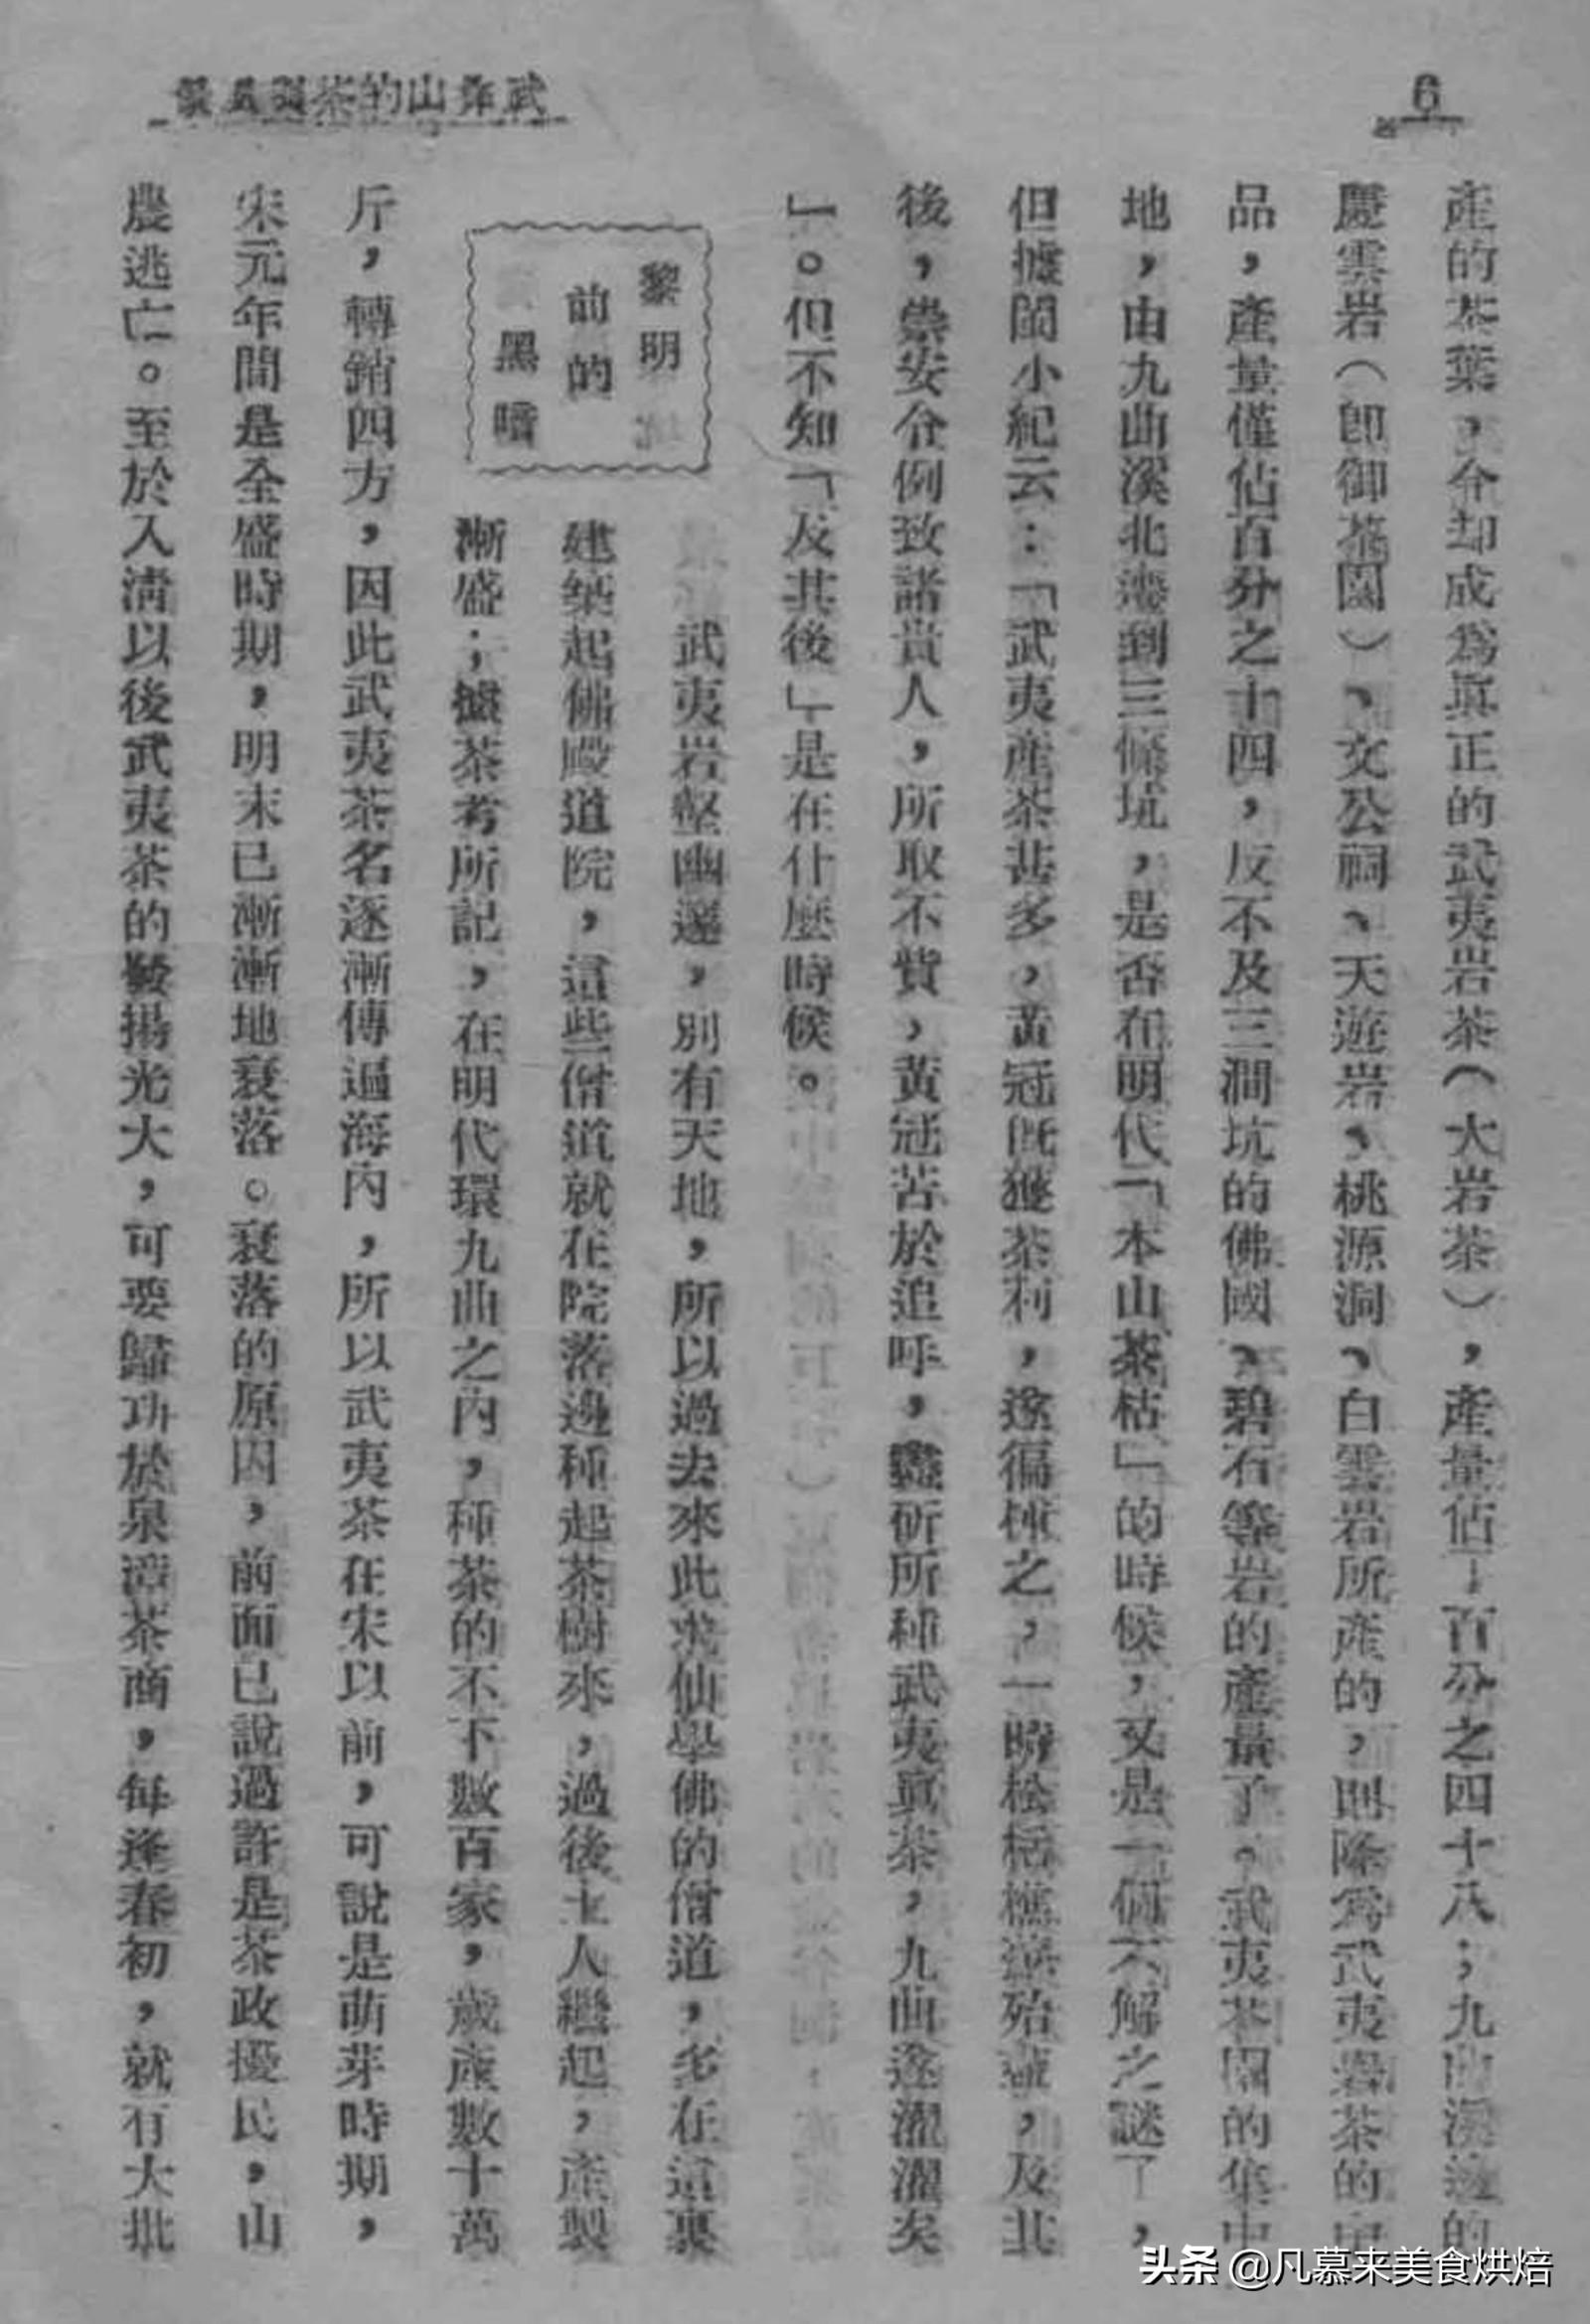 6
武夷山的茶與風景
產的茶葉，今却成爲眞正的武夷岩茶（大岩茶），產量佔了百分之四十八；九曲溪邊的
慶雲岩（卽御茶園）、文公祠、天遊岩、桃源洞、白雲岩所產的，則降爲武夷岩茶的中
品，產量僅佔百分之十四，反不及三澗坑的佛國、碧石等岩的產量了。武夷茶園的集中
地，由九曲溪北湊到三條坑，是否在明代「本山茶枯」的時候，又是一個不解之謎了，
但據閩小紀云：「武夷產茶甚多，黃冠旣獲茶利，遂徧種之，一時松栝樵蘇殆盡，及其
後，崇安令例致諸貴人，所取不貲，黃冠苦於追呼，盡斫所種武夷眞茶，九曲遂濯濯矣
」。但不知「及其後」是在什麼時候。
黎明
前的
黑暗
武夷岩壑幽邃，別有天地，所以過去來此求仙學佛的僧道，多在這裏
建築起佛殿道院，這些僧道就在院落邊種起茶樹來，過後土人繼起，產製
漸盛；據茶考所記，在明代環九曲之內，種茶的不下數百家，歲產數十萬
斤，轉銷四方，因此武夷茶名逐漸傳遍海內，所以武夷茶在宋以前，可說是萌芽時期，
宋元年間是全盛時期，明末已漸漸地衰落。衰落的原因，前面已說過許是茶政擾民，山
農逃亡。至於入淸以後武夷茶的發揚光大，可要歸功於泉漳茶商，每逢春初，就有大批
头条 @凡慕来美食烘焙